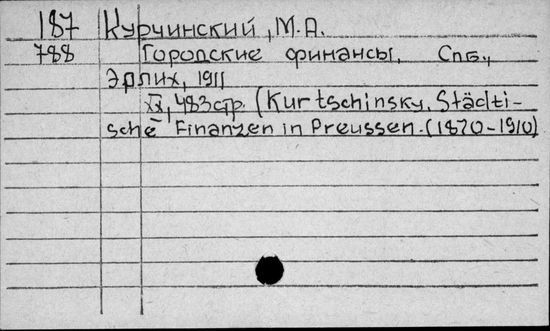 187 Курчинский, М.А.
788 Городские финансы. Спб.,
Эрлих, 1911
IX, 483 стр. (Kurtschinsky. Städti-
sche Finanzen in Preussen. (1870-1910)